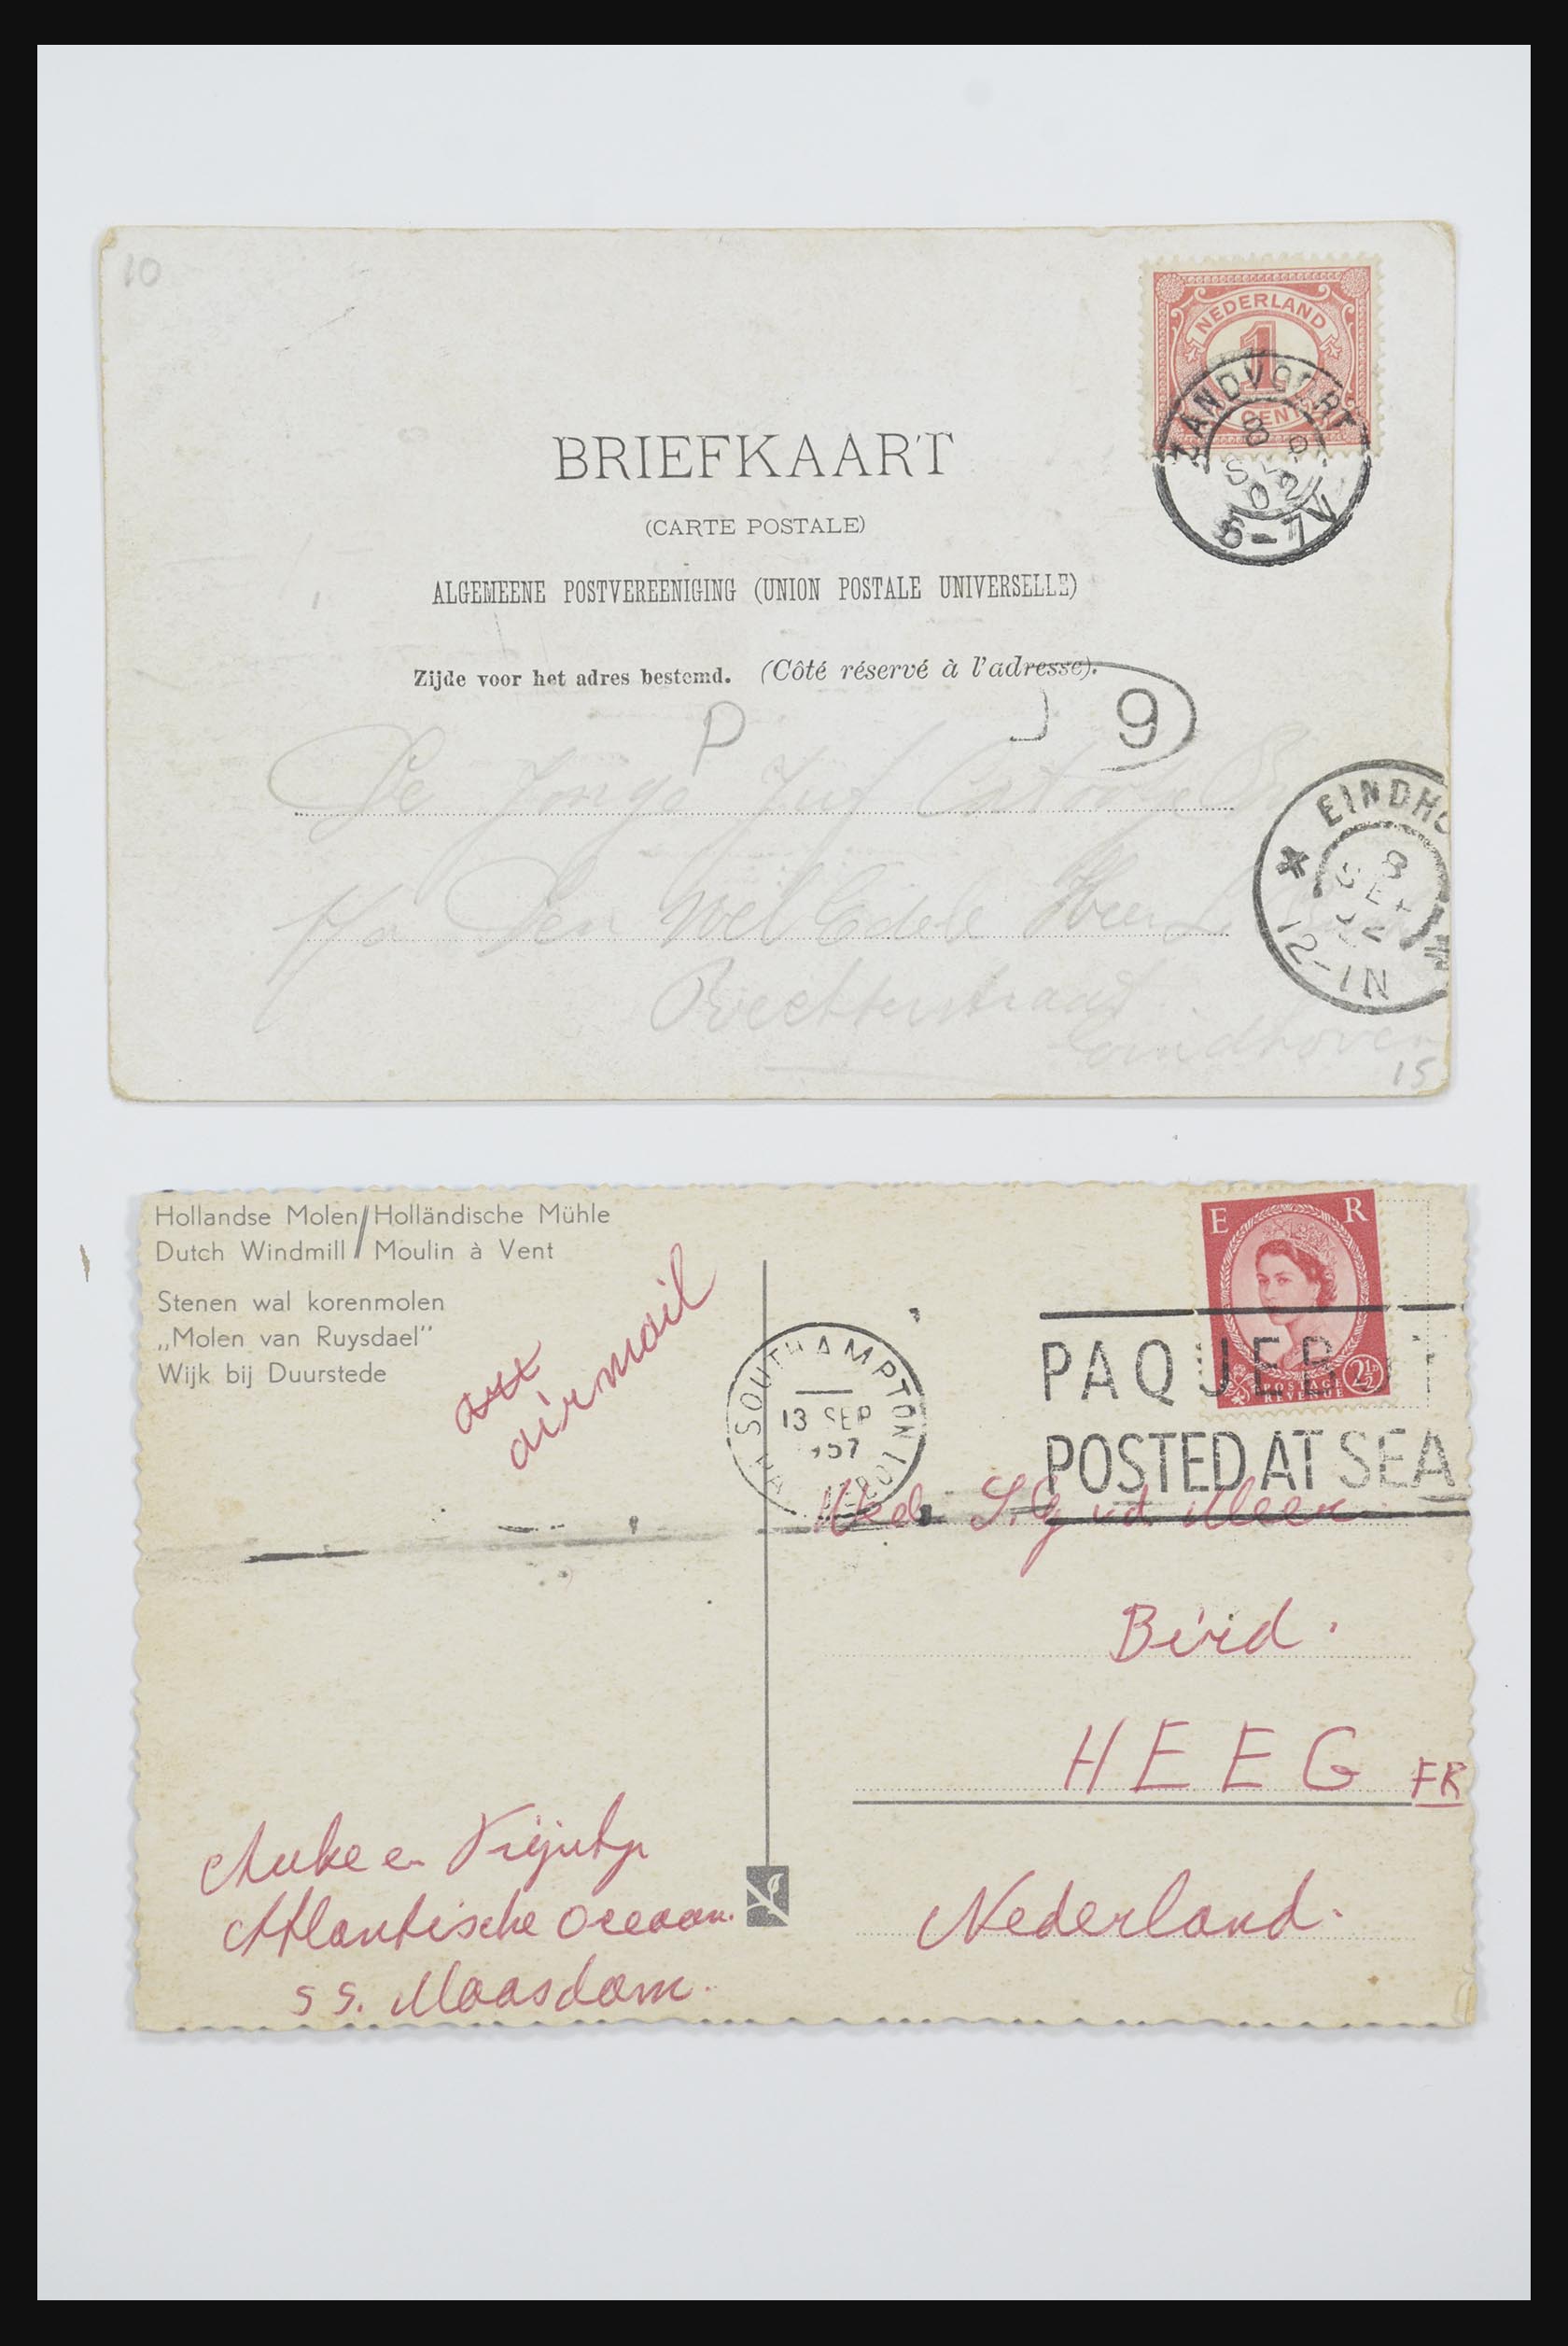 10
NEDERLAND
1
CENT
ZANDVOORT
8 SEP
02
6-7V
BRIEFKAART
(CARTE POSTALE)
ALGEMEENE POSTVEREENIGING (UNION POSTALE UNIVERSELLE)
Zijde voor het adres bestemd. (Côté réservé à l'adresse).
P
9
De Jonge Juf
Den Wel Edele Heer L
Rechterstraat
Eindhoven
15
EINDHO
8
SEP
12-1N
Hollandse Molen/Holländische Mühle
Dutch Windmill/Moulin à Vent
Stenen wal korenmolen
„Molen van Ruysdael”
Wijk bij Duurstede
airmail
E R
POSTAGE
REVENUE
2½D
SOUTHAMPTON
13 SEP
1957
PAQUEBOT
POSTED AT SEA
Wed. S. G v.d. Meer
Bird.
HEEG FR
Nederland.
Auke en
Atlantische Oceaan.
S S. Maasdam.